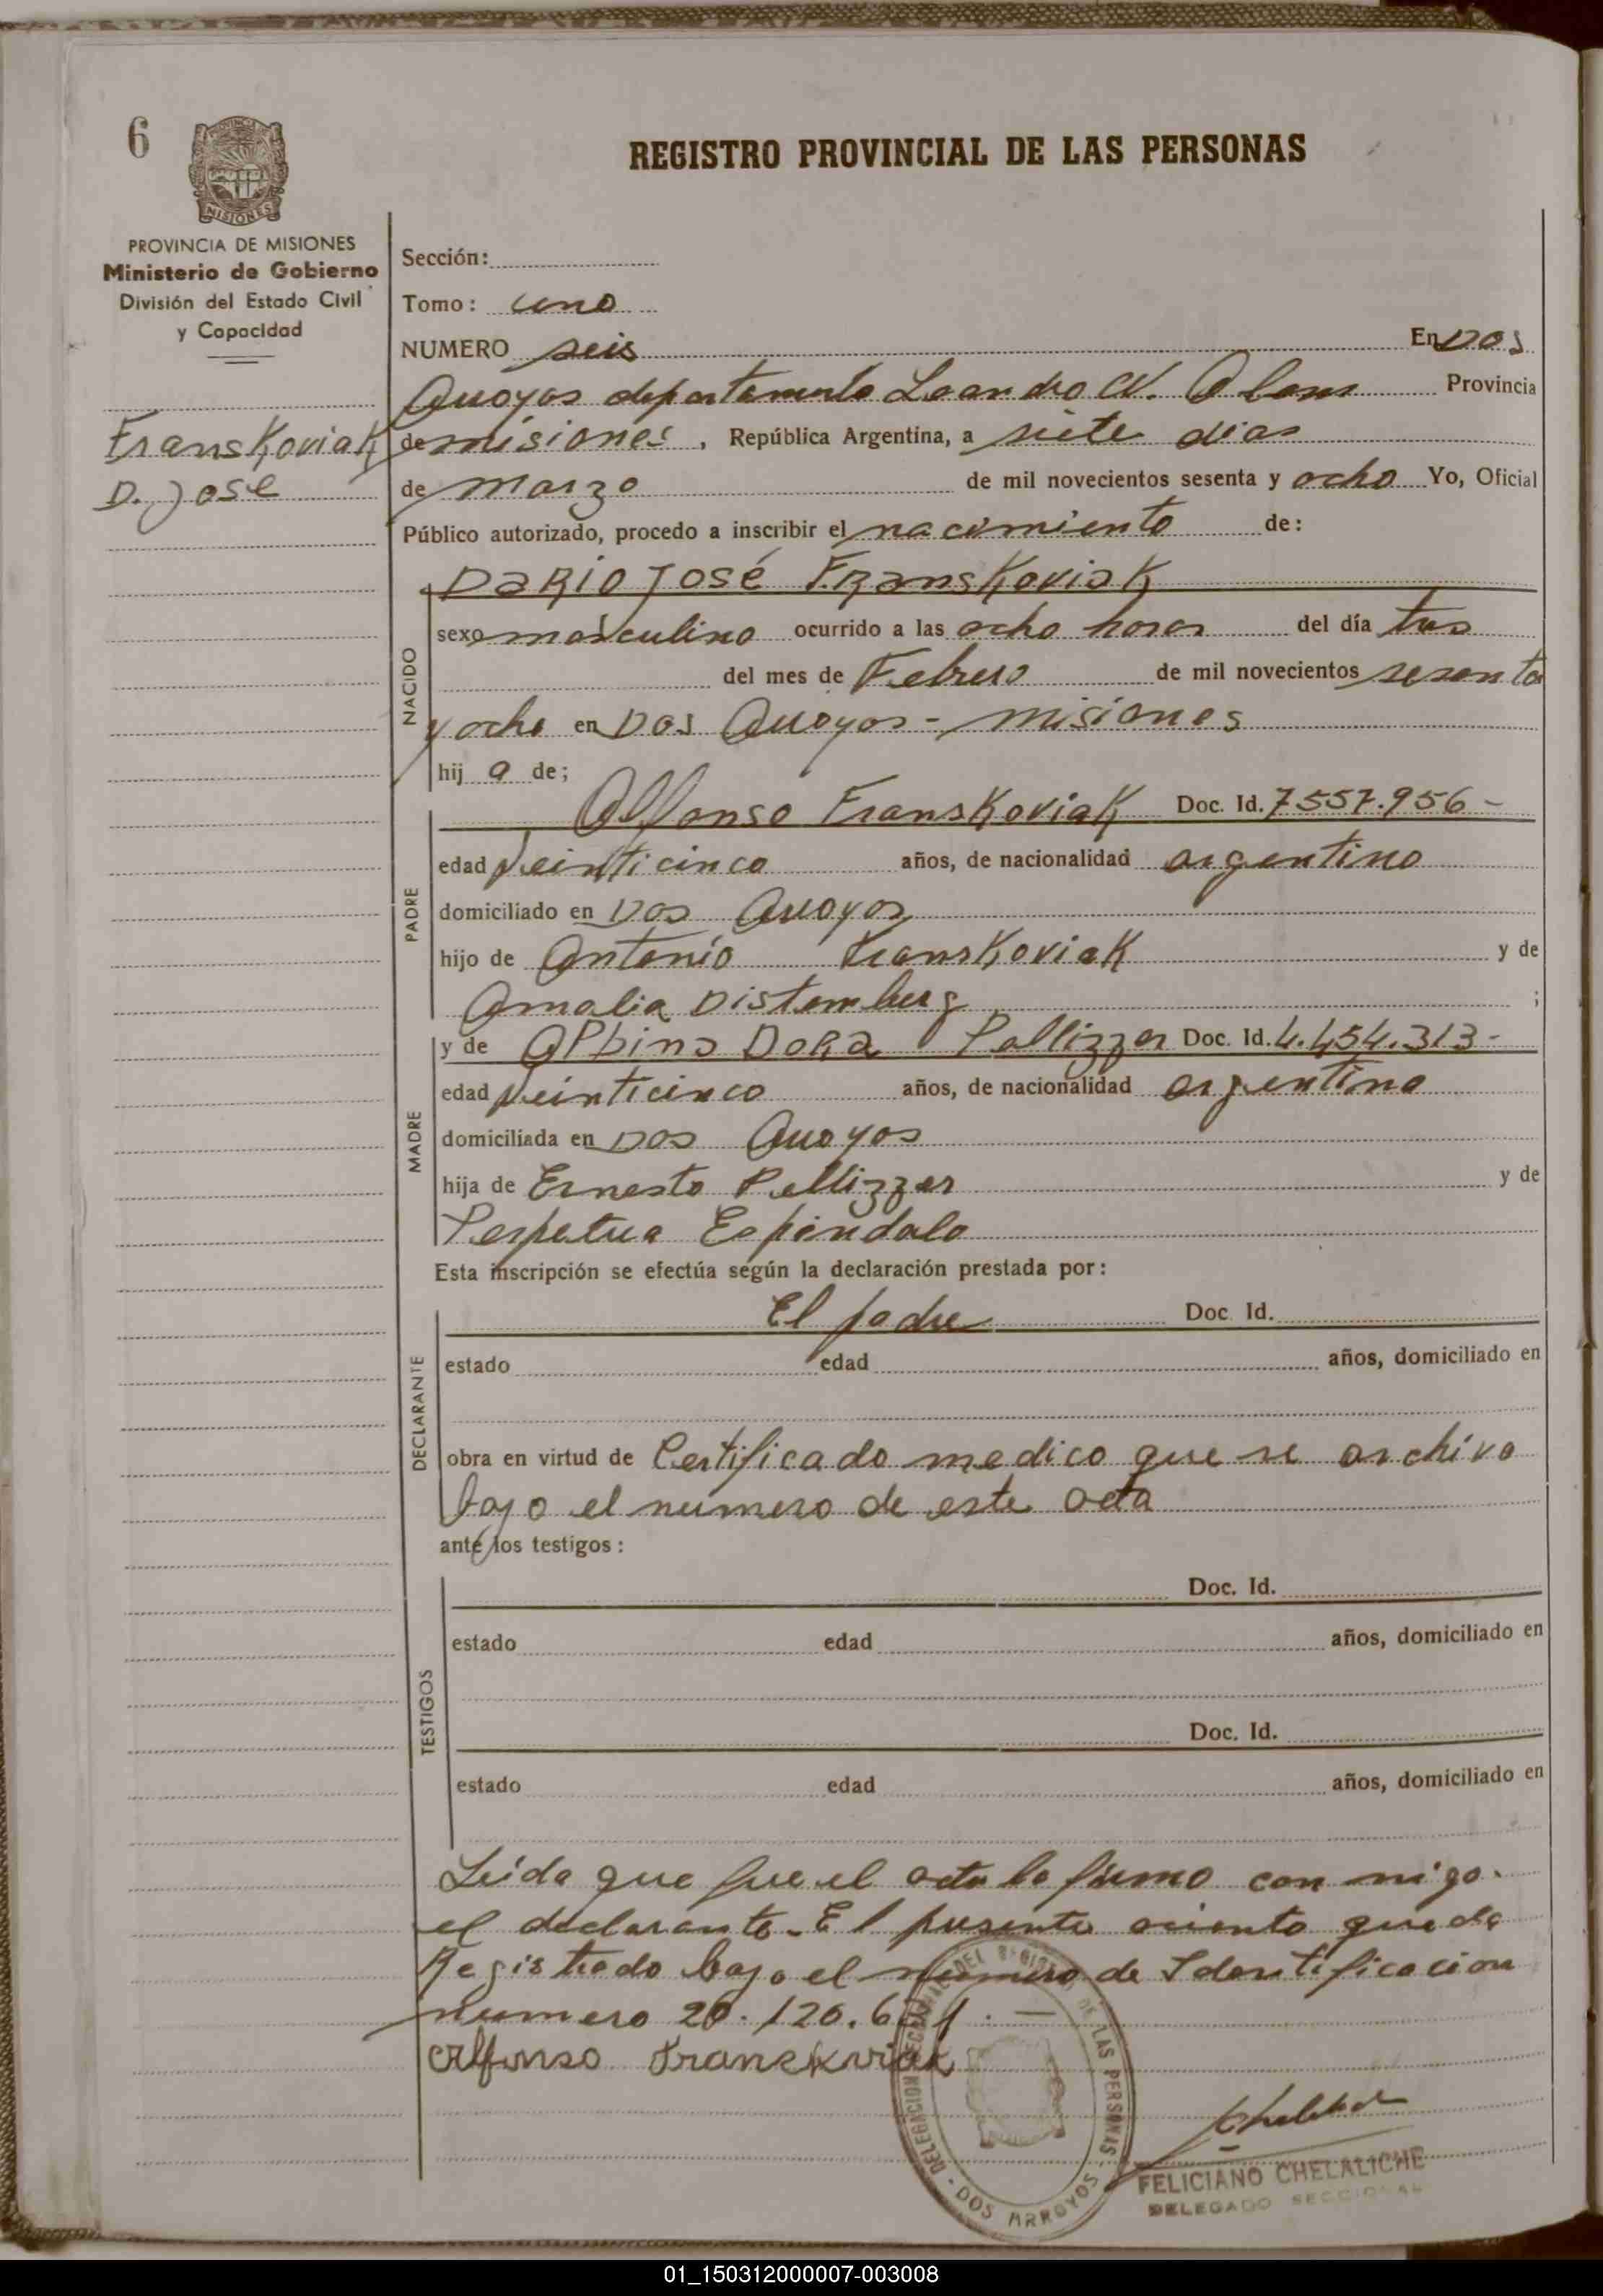 6
PROVINCIA DE MISIONES
Ministerio de Gobierno
División del Estado Civil
y Capacidad
Franskoviak
D. José
REGISTRO PROVINCIAL DE LAS PERSONAS
Sección:
Tomo: uno
NUMERO seis En Dos
Arroyos departamento Leandro N. Alem Provincia
de misiones, República Argentina, a siete dias
de marzo de mil novecientos sesenta y ocho Yo, Oficial
Público autorizado, procedo a inscribir el nacimiento de:
NACIDO
DARIO JOSÉ FRansKoviaK
sexo masculino ocurrido a las ocho horas del día tres
del mes de Febrero de mil novecientos sesenta
y ocho en Dos Arroyos - misiones
hij o de;
PADRE
Alfonso Franskoviak Doc. Id. 7.557.956-
edad veinticinco años, de nacionalidad argentino
domiciliado en Dos Arroyos
hijo de Antonio Franskoviak y de
Amalia Distemberg ;
MADRE
y de Albina Dora Pellizzer Doc. Id. 4.454.313-
edad veinticinco años, de nacionalidad argentina
domiciliada en Dos Arroyos
hija de Ernesto Pellizzer y de
Perpetua Espindola
Esta inscripción se efectúa según la declaración prestada por:
DECLARANTE
El padre Doc. Id.
estado edad años, domiciliado en
obra en virtud de Certificado medico que se archiva
bajo el numero de este acta
ante los testigos:
TESTIGOS
Doc. Id.
estado edad años, domiciliado en
Doc. Id.
estado edad años, domiciliado en
Leida que fue el acta la firmo con migo
el declarante. El presente aciento queda
Registrado bajo el numero de Identificacion
numero 20.120.6
Alfonso Franskoviak
DOS ARROYOS
FELICIANO CHELALICHE
DELEGADO SECCIONAL
01_150312000007-003008